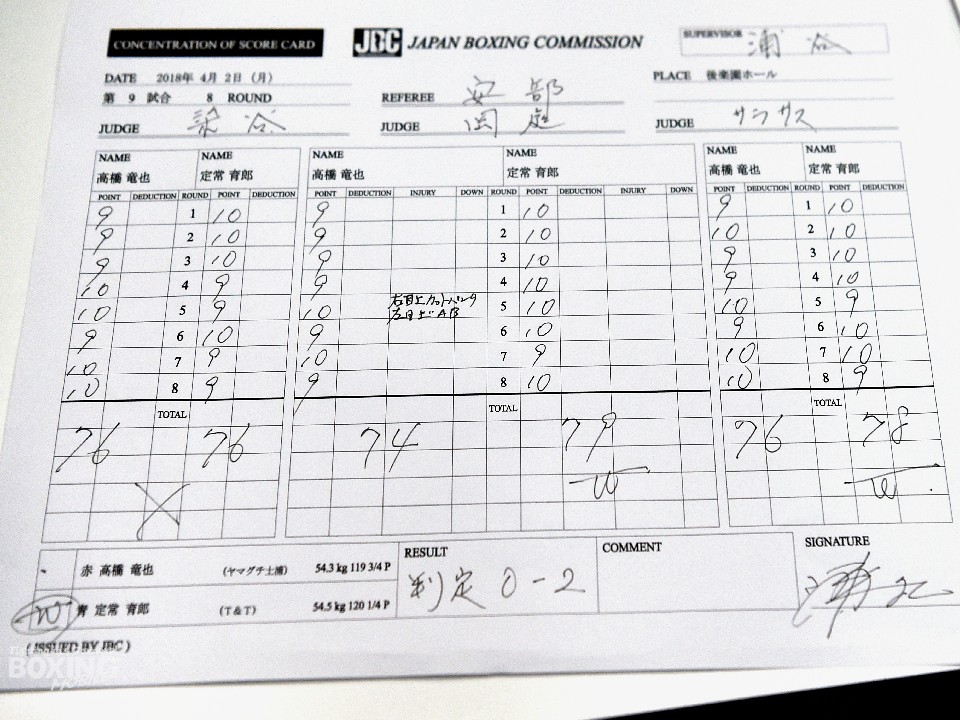 CONCENTRATION OF SCORE CARD JBC JAPAN BOXING COMMISSION SUPERVISOR 浦谷
DATE 2018年 4月 2日 (月) PLACE 後楽園ホール
第 9 試合 8 ROUND REFEREE 安部
JUDGE 染谷 JUDGE 岡庭 JUDGE サラサス
NAME NAME NAME NAME NAME NAME
高橋 竜也 定常 育郎 高橋 竜也 定常 育郎 高橋 竜也 定常 育郎
POINT DEDUCTION ROUND POINT DEDUCTION POINT DEDUCTION INJURY DOWN ROUND POINT DEDUCTION INJURY DOWN POINT DEDUCTION ROUND POINT DEDUCTION
9 1 10 9 1 10 9 1 10
9 2 10 9 2 10 10 2 10
9 3 10 9 3 10 9 3 10
10 4 9 9 4 10 9 4 10
10 5 9 10 右目上カットパンチ 5 10 10 5 9
左目上AB
9 6 10 9 6 10 9 6 10
10 7 9 10 7 9 10 7 10
10 8 9 9 8 10 10 8 9
TOTAL TOTAL TOTAL
76 76 74 79 76 78
X W W
赤 高橋 竜也 (ヤマグチ土浦) 54.3 kg 119 3/4 P RESULT COMMENT SIGNATURE
W 青 定常 育郎 (T&T) 54.5 kg 120 1/4 P 判定 0-2
( ISSUED BY JBC )
BOXING